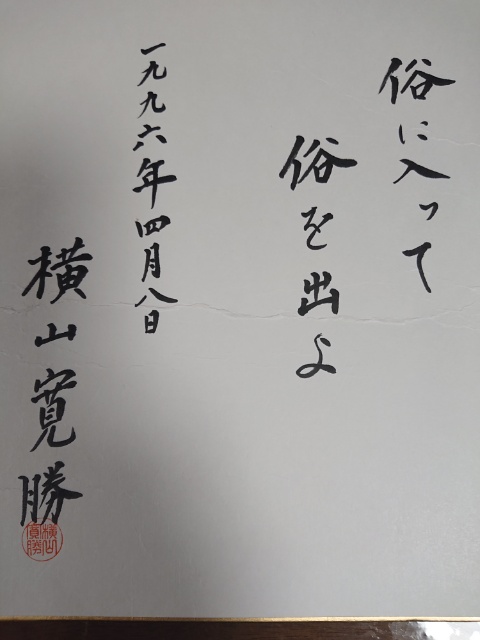 俗に入って
俗を出よ
一九九六年四月八日
横山寛勝
横山
寛勝